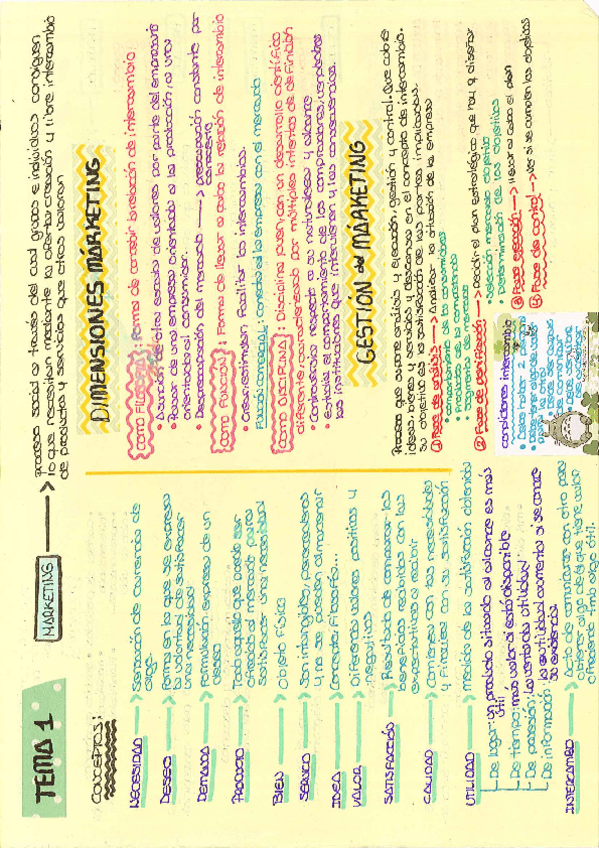 TEMA 1
MARKETING → Proceso social a través del cual grupos e individuos consiguen
lo que necesitan mediante la oferta, creación y libre intercambio
de productos y servicios que otros valoran
CONCEPTOS:
NECESIDAD → Sensación de carencia de
algo.
DESEO → Forma en la que se expresa
la voluntad de satisfacer
una necesidad
DEMANDA → Formulación expresa de un
deseo
PRODUCTO → Todo aquello que puede ser
ofrecido al mercado para
satisfacer una necesidad
BIEN → Objeto físico
SERVICIO → Son intangibles, perecederos
y no se pueden almacenar
IDEA → Concepto, Filosofía...
VALOR → Diferencia valores positivos y
negativos
SATISFACCIÓN → Resultado de comparar los
beneficios recibidos con las
expectativas a recibir
CALIDAD → Comienza con las necesidades
y finaliza con su satisfacción
UTILIDAD → Medida de la satisfacción obtenida
De lugar: un producto situado al alcance es más
útil
De tiempo: más valor si está disponible
De posesión: la venta da utilidad
De información: la utilidad aumenta si se conoce
su existencia
INTERCAMBIO → Acto de comunicarse con otro para
obtener algo de él que tiene valor
ofreciendo tmb algo
DIMENSIONES MÁRKETING
COMO FILOSOFÍA: Forma de concebir la relación de intercambio
• Asunción de otra escala de valores por parte del empresario
• Pasar de una empresa orientada a la producción, a una
orientada al consumidor.
• Despreocupación del mercado → preocupación constante por
conocerlo
COMO FUNCIÓN: Forma de llevar a cabo la relación de intercambio
• Crear, estimular, facilitar los intercambios.
Función comercial: conecta a la empresa con el mercado
COMO DISCIPLINA: Disciplina joven con un desarrollo científico
diferente, caracterizado por múltiples intentos de definición
• Controversia respecto a su naturaleza y alcance
• Estudia el comportamiento de los compradores, vendedores
las instituciones que intervienen y las consecuencias.
GESTIÓN del MÁRKETING
Proceso que supone análisis y ejecución, gestión y control, que cubre
ideas, bienes y servicios y descansa en el concepto de intercambio.
Su objetivo es la satisfacción de las partes implicadas.
① Fase de análisis → Analizar la situación de la empresa
• Comportamiento de los consumidores
• de la competencia
• Segmento de mercado
② Fase de planificación → Decidir el plan estratégico que hay q diseñar
• Selección mercado objetivo
• Determinación de los objetivos
③ Fase ejecución → llevar a cabo el plan
④ Fase de control → ver si se cumplen los objetivos
condiciones intercambio
• Debe haber 2 partes